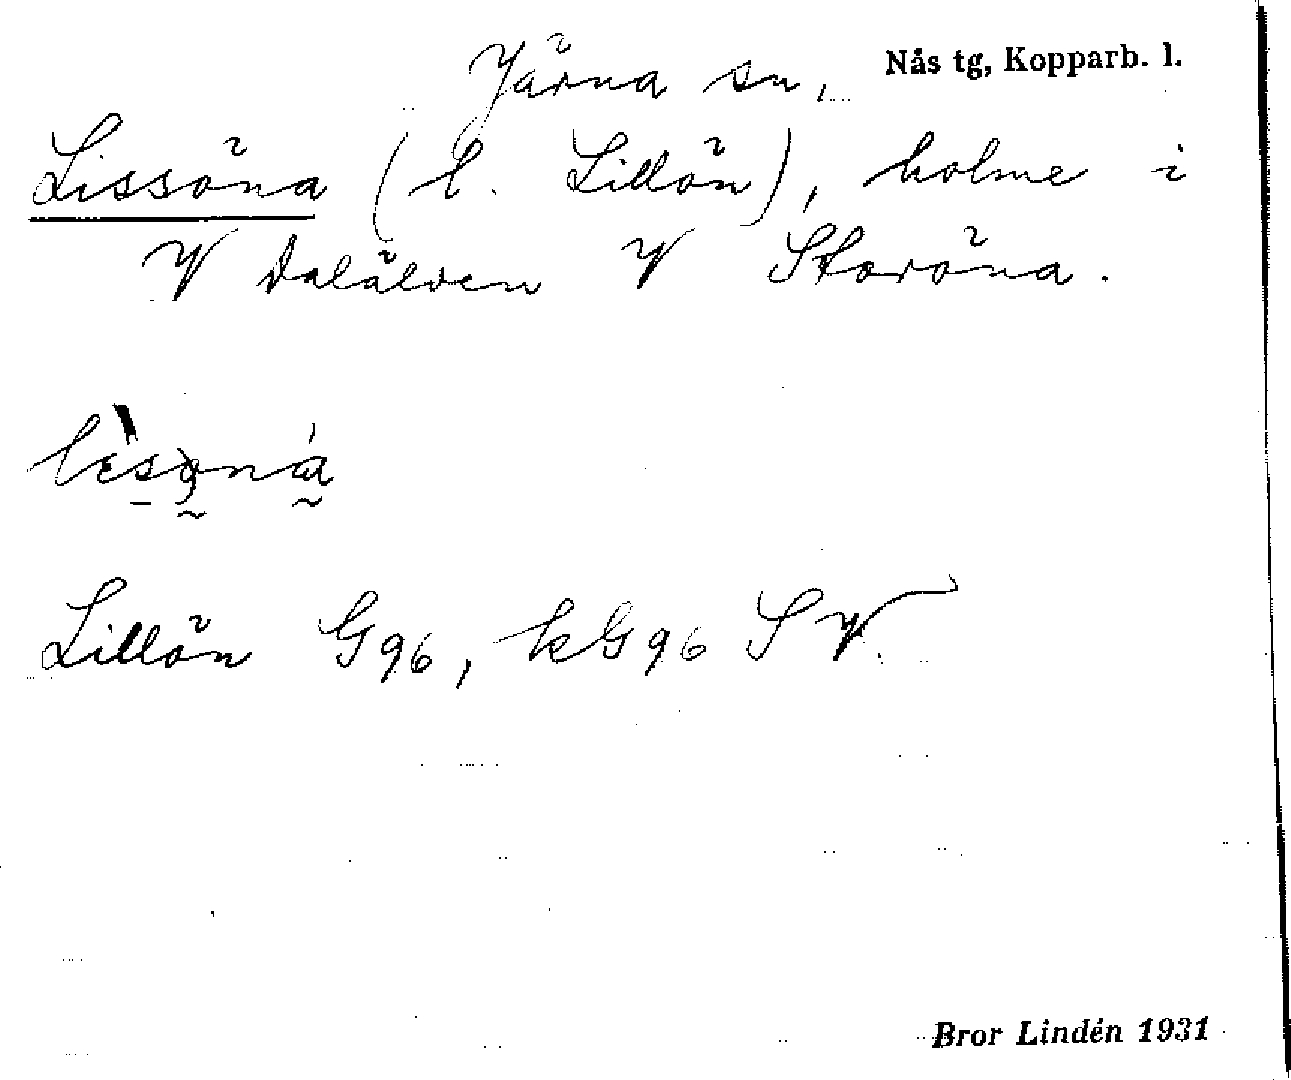 Järna sn, Nås tg, Kopparb. l.
Lissöna (l. Lillön), holme i
V Dalälven V Storöna.
Lillön G96, kG96 SV.
Bror Lindén 1931